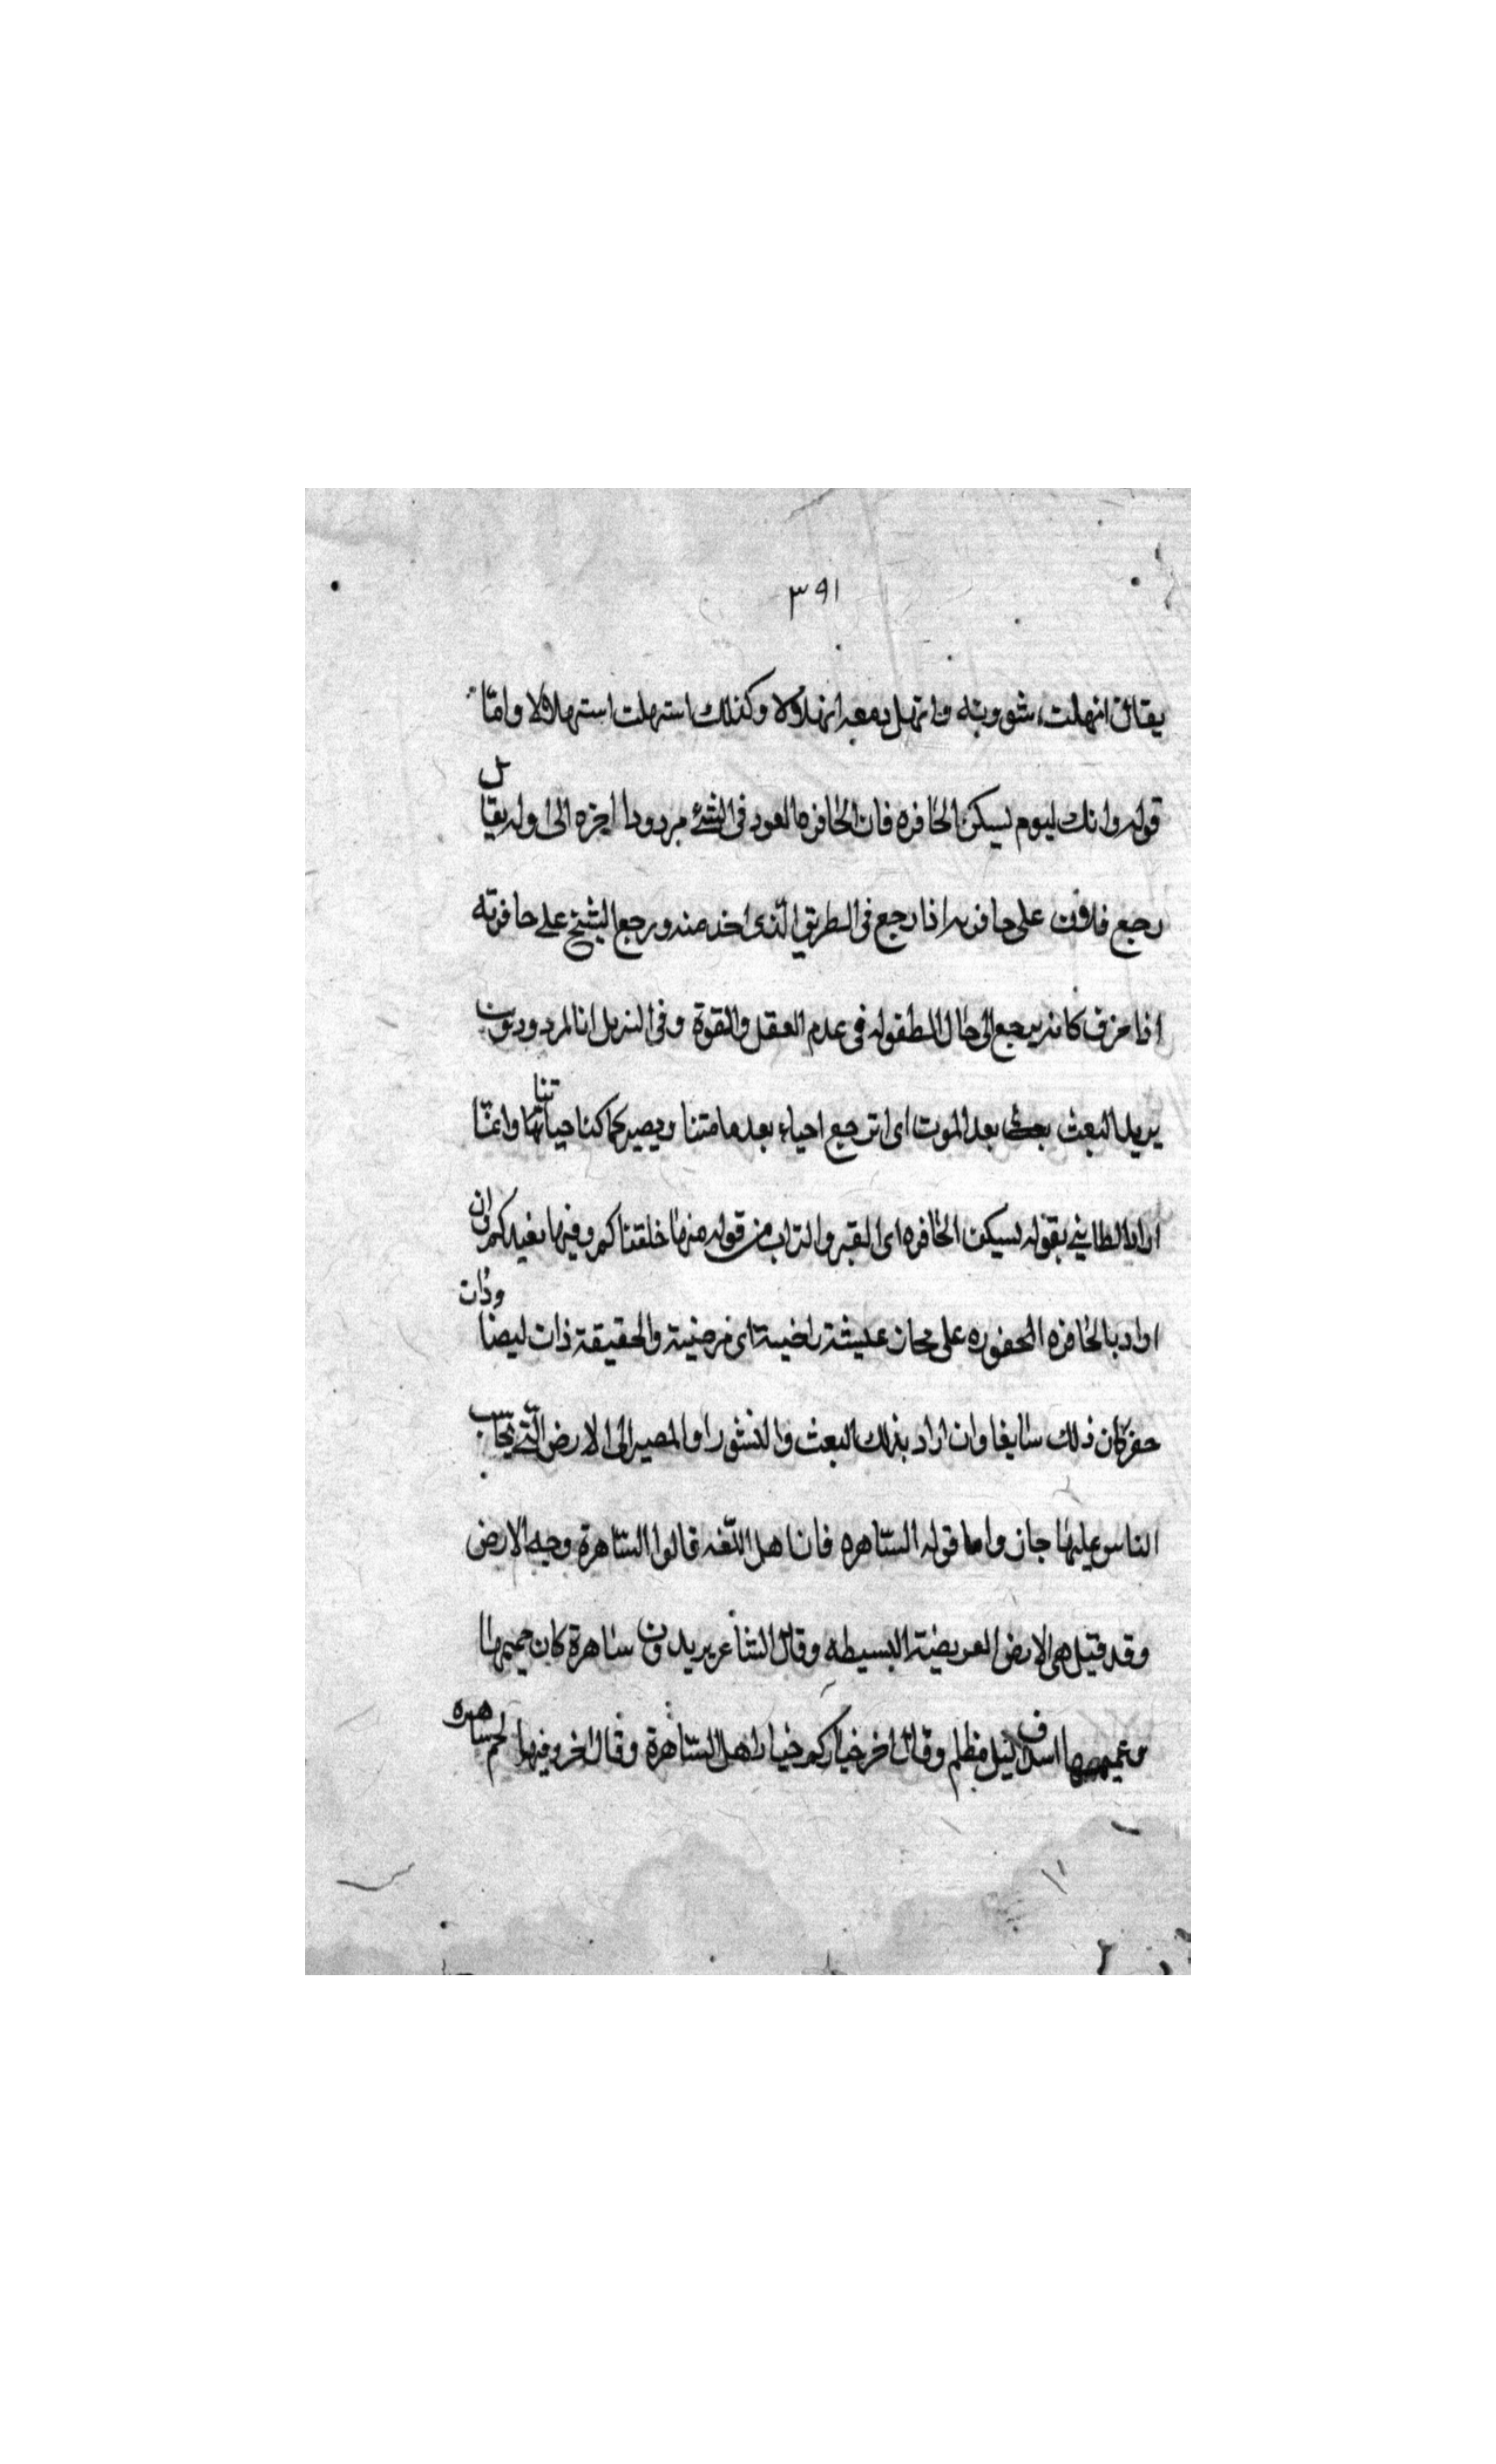 ٣٩١
يقال انهلت شؤوبته وانهل دمعه انهلالا وكذلك استهلت استهلالا واما
قوله وانك ليوم لسيكن الحافره فان الحافره العود فى الشئ مردودا اخره الى اوله يقال
رجع فلان على حافرته اذا رجع فى الطريق الذى اخذ منه ورجع الشيخ على حافرته
اذا خرف كانه يرجع الى حال الطفوله فى عدم العقل والقوة وفى التنزيل انا لمردودون
يريد البعث بعد الموت اى انرجع احياء بعد ما متنا ونصير كما كنا حياتنا وانما
اراد الطائي بقوله لسيكن الحافره اى القبر والتراب من قوله منها خلقناكم وفيها نعيدكم وان
اراد بالحافره المحفوره على مجاز عيشة راضية اى مرضية والحقيقة ذات ليضا وذات
حفر كان ذلك سايغا وان اراد بذلك البعث والنشور او المصير الى الارض التى يحاسب
الناس عليها جاز واما قوله الساهره فان اهل اللغه قالوا الساهرة وجه الارض
وقد قيل هى الارض العريضة البسيطه وقال الشاعر يريدون ساهرة كان جميمها
وعميمها اسداف ليل مظلم وقال اخر خياركم خيار اهل الساهرة وقال اخر وفيها لحم ساهره